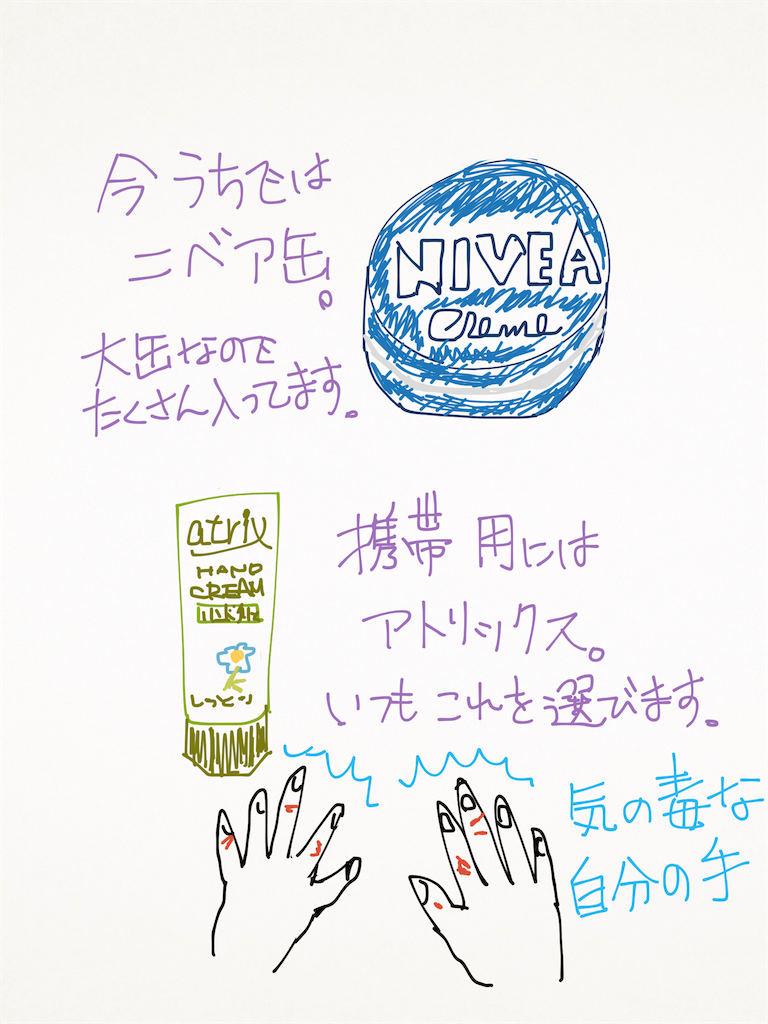 今うちでは
ニベア缶。
大缶なので
たくさん入ってます。
NIVEA
Creme
atrix
HAND
CREAM
しっとり
携帯用には
アトリックス。
いつもこれを選びます。
気の毒な
自分の手